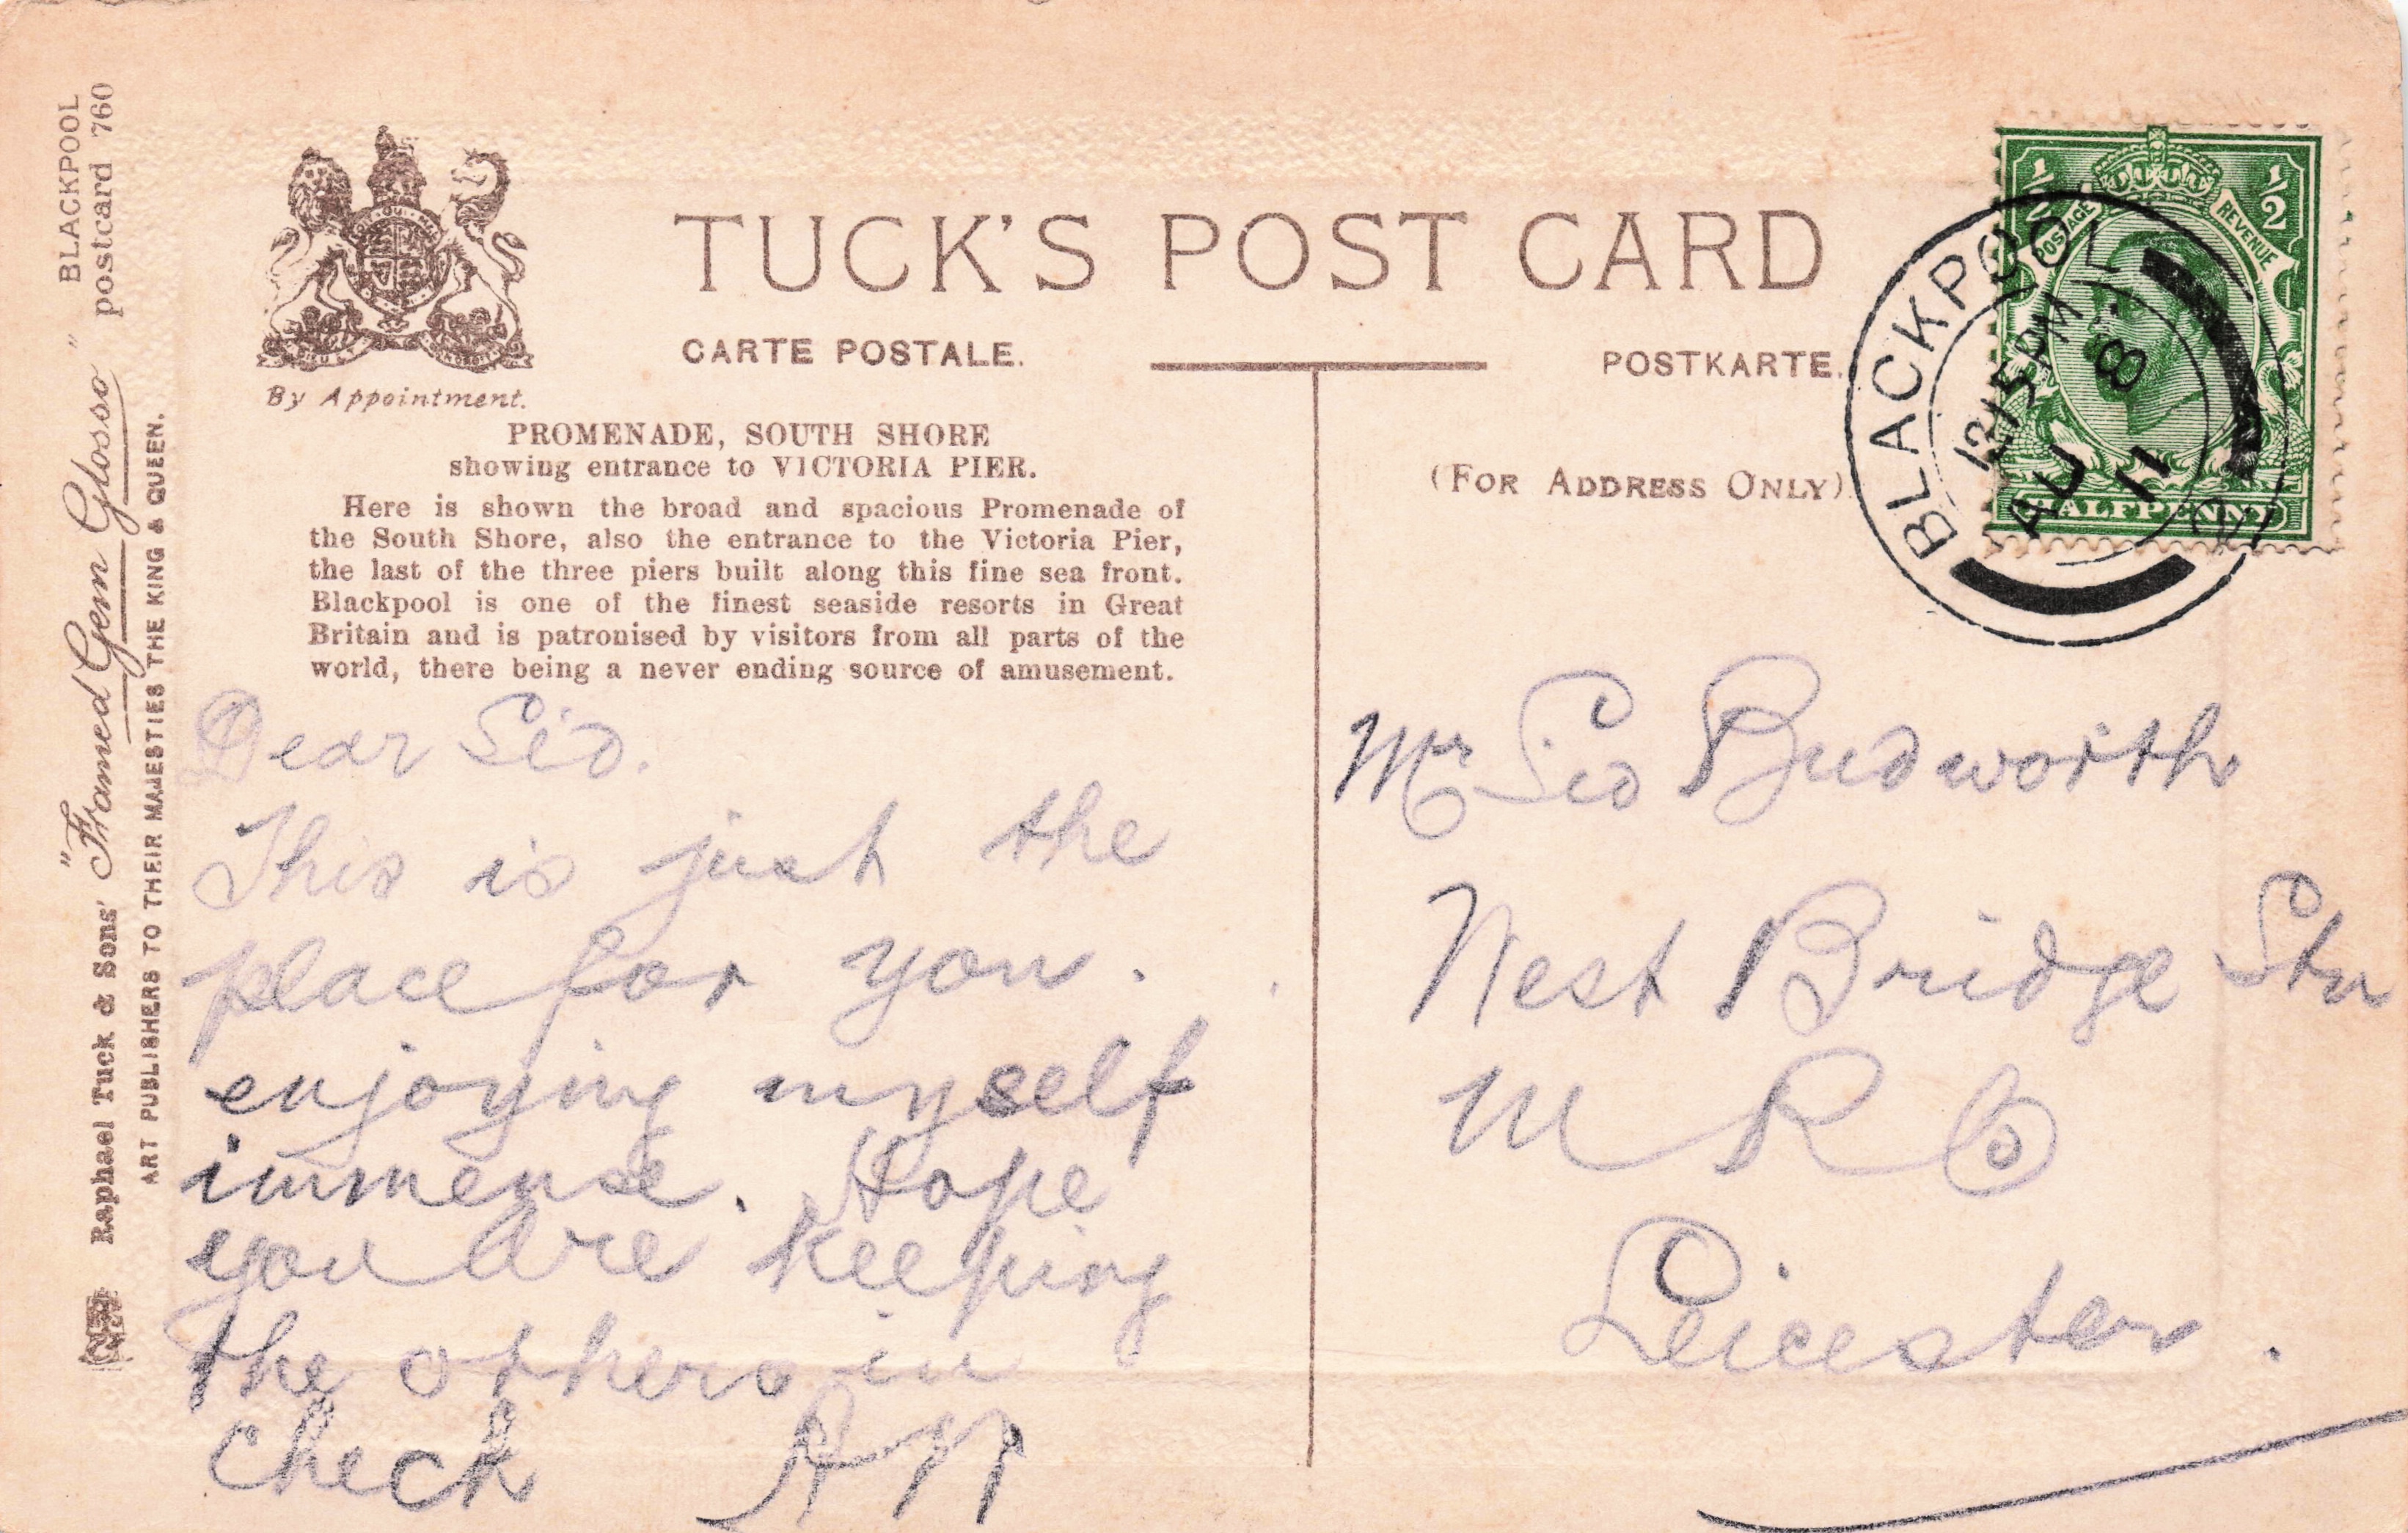 TUCK'S POST CARD
CARTE POSTALE.
POSTKARTE.
By Appointment.
(FOR ADDRESS ONLY).
PROMENADE, SOUTH SHORE
showing entrance to VICTORIA PIER.
Here is shown the broad and spacious Promenade of
the South Shore, also the entrance to the Victoria Pier,
the last of the three piers built along this fine sea front.
Blackpool is one of the finest seaside resorts in Great
Britain and is patronised by visitors from all parts of the
world, there being a never ending source of amusement.
Dear Sid.
This is just the
place for you.
enjoying myself
immense. Hope
you are keeping
the others in
check
Mr Sid Budworth
West Bridge Stn
M R Co
Leicester.
½ ½
POSTAGE REVENUE
HALFPENNY
BLACKPOOL
12 15 PM
AU 8
11
Raphael Tuck & Sons' "Framed Gem Glosso" BLACKPOOL
postcard 760
ART PUBLISHERS TO THEIR MAJESTIES THE KING & QUEEN.